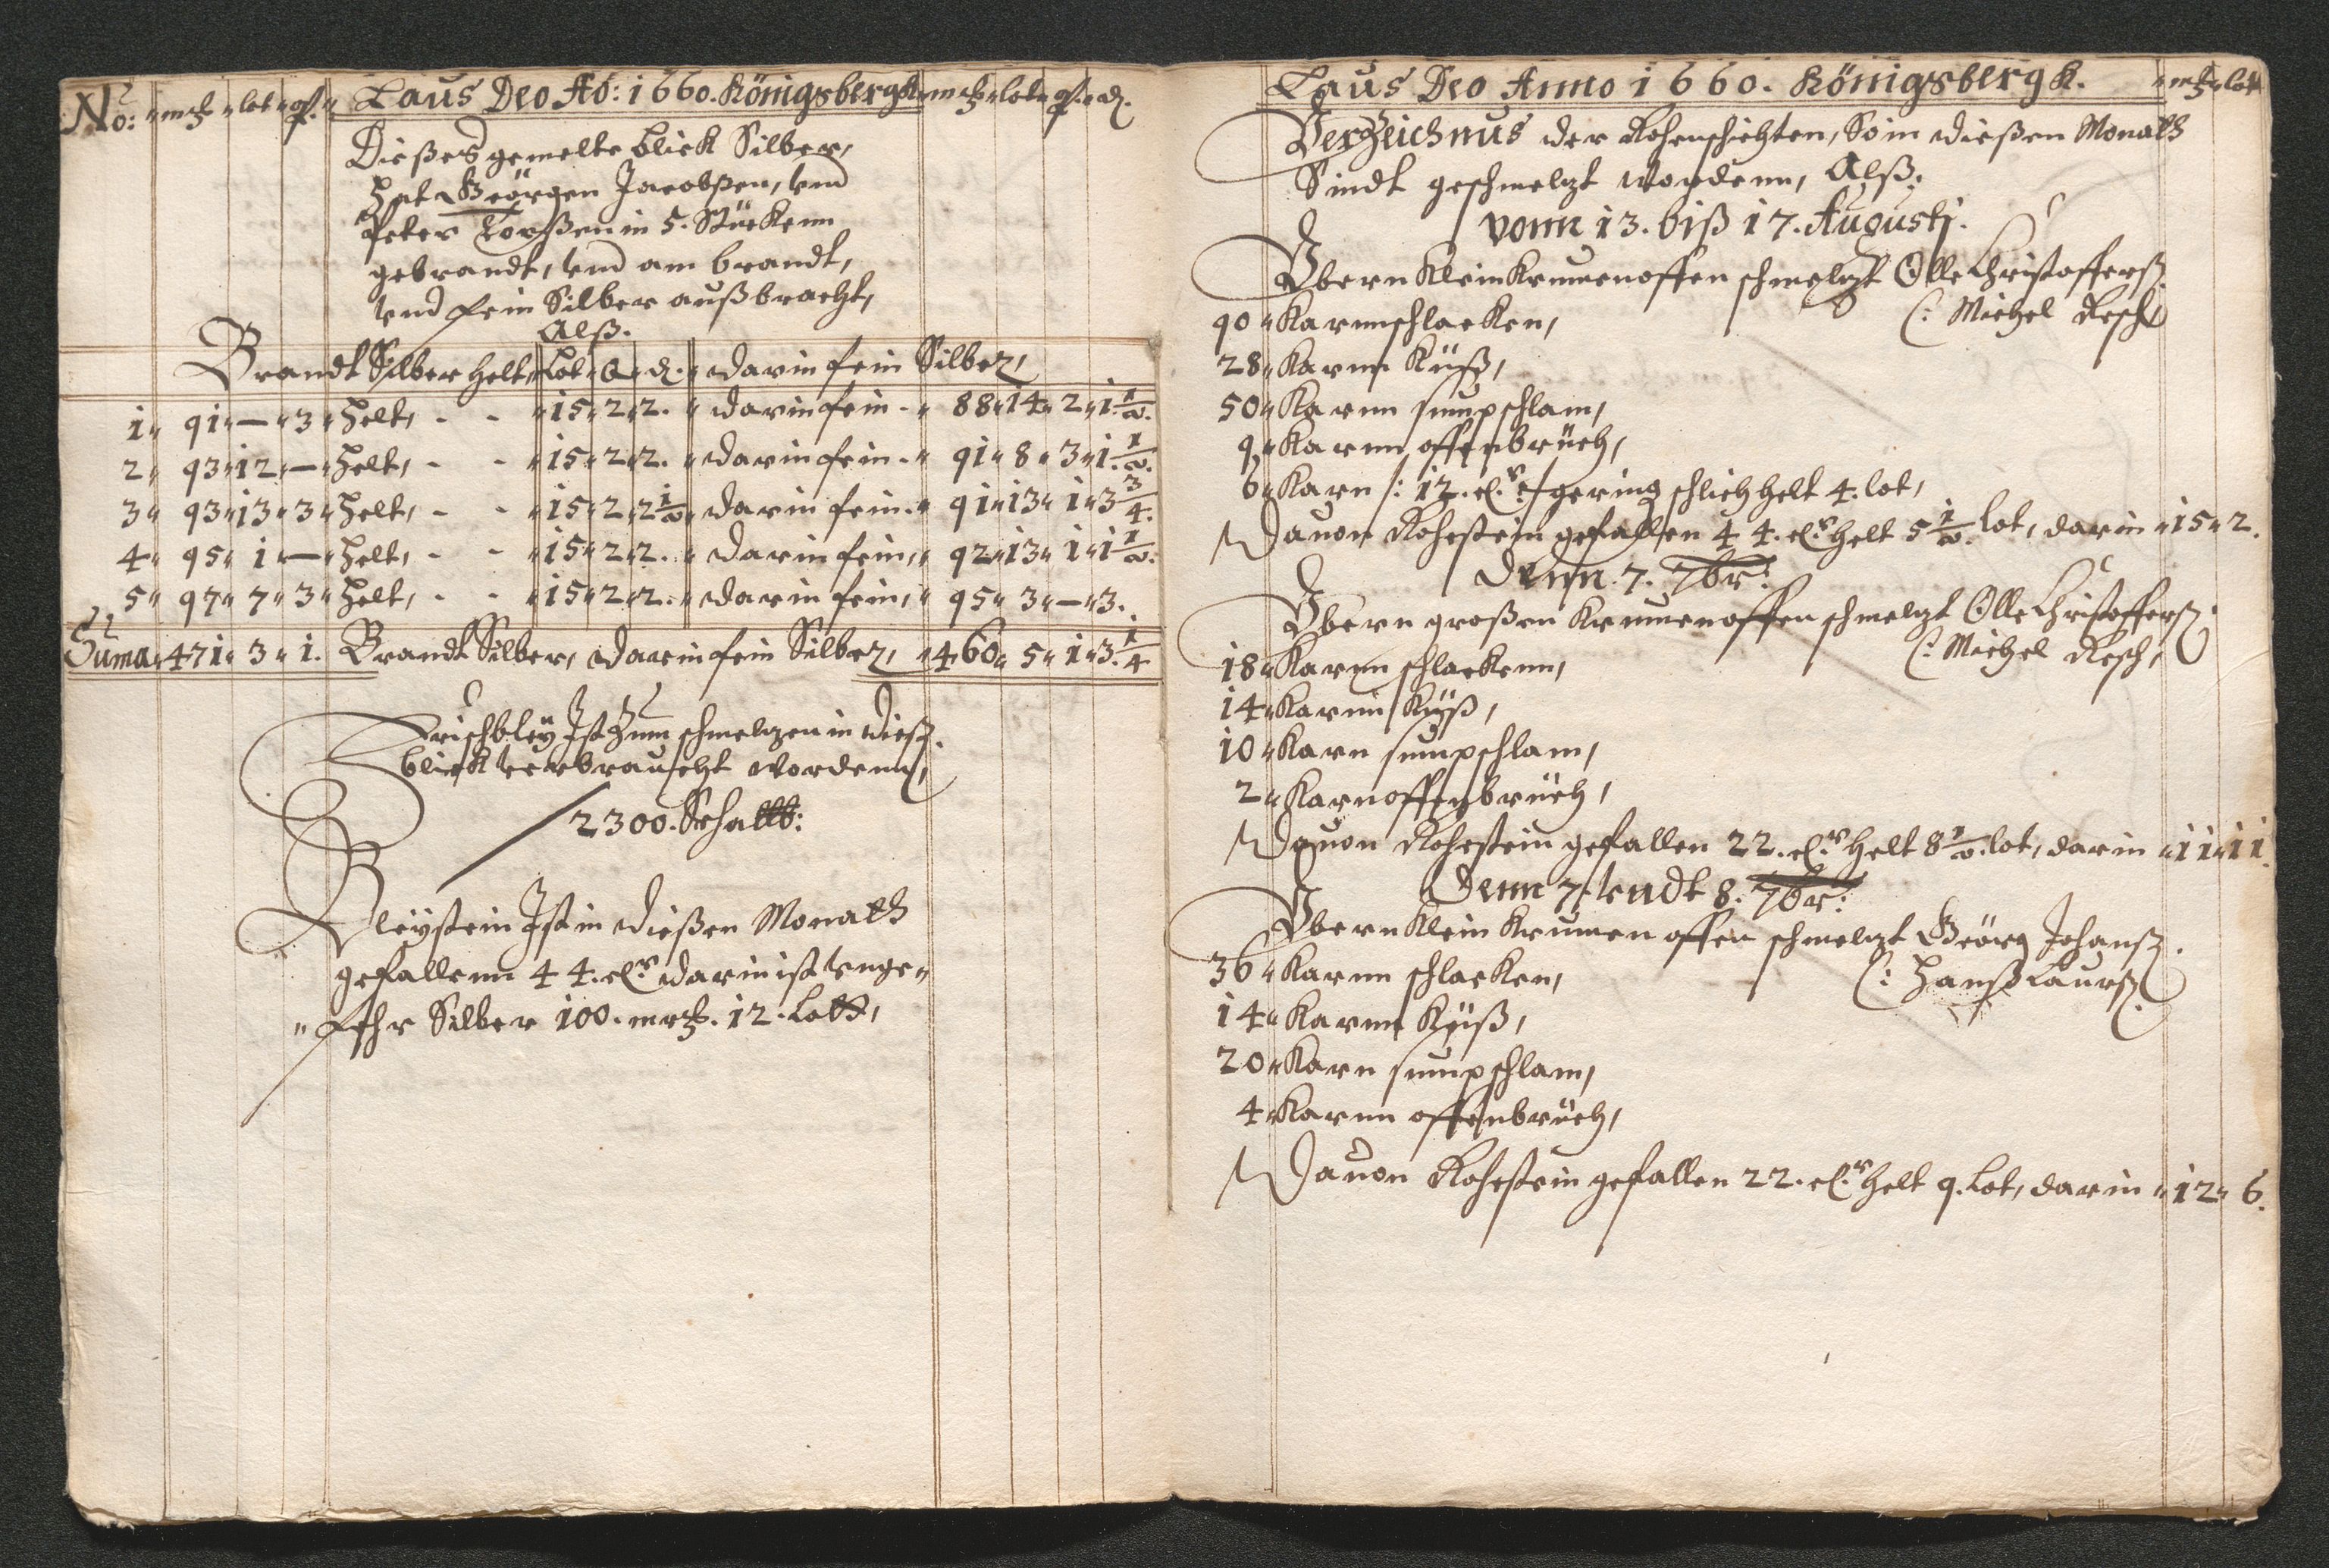 No: mrk lot qt. Laus Deo Ao: 1660. Königsbergk mrk lot qt. d.
Dießes gemelte blick Silber,
Hat Geörgen Jacobßen, vnd
Peter Torßen in 5. Stückenn
gebrandt, vnd am brandt,
vnd fein Silber außbracht,
Alß.
Brandt Silber helt, Lot Q d. darin fein Silber,
1 91 — 3 Helt, - - 15 2 2. darin fein - 88 14 2 1 1/2.
2 93 12 — Helt, - - 15 2 2. darin fein - 91 8 3 1 1/2.
3 93 13 3 Helt, - - 15 2 2 1/2 darin fein - 91 13 1 3 3/4.
4 95 1 — Helt, - - 15 2 2. darin fein, 92 13 1 1 1/2.
5 97 7 3 Helt, - - 15 2 2. darin fein, 95 3 — 3.
Suma 471 3 1. Brandt Silber, darin fein Silber, 460 5 1 3 1/4
Frischbleÿ Ist Zum schmeltzen in dieß.
blick verbraucht wordenn,
2300. Schallb:
Bleÿstein Ist in dießen Monath
gefallenn 44. Cr darin ist vnge-
fehr Silber 100. mrk. 12. Lott,
Laus Deo Anno 1660. Königsbergk. mrk lott
Verzeichnus der Rohenschichten, So in dießen Monath
Sindt geschmeltzt wordenn, Alß.
vonn 13. biß 17. Augustj.
Vbern klein Krumenoffen schmeltzt Olle Christofferß.
90 Karnnschlacken, C: Michel Resch
28 Karnn Küß,
50 Karnn sumpschlam,
9 Karnn offenbrüch,
6 Karn /: 12. Cr :/ gering schlich helt 4. lot,
Dauon Rohstein gefallen 44. Cr helt 5 1/2. lot, darin 15 2.
Denn. 7. 7br:
Vbern großen Krumenoffen schmeltzt Olle Christofferß.
18 Karnn schlackenn, C: Michel Resch,
14 Karnn Küß,
10 Karn sumpschlam,
2 Karnoffenbrüch,
Dauon Rohstein gefallen 22. Cr helt 8 1/2. lot, darin 11 11.
Denn 7. vndt 8. 7br:
Vbern klein Krumen offen schmeltzt Geörg Johanß.
36 Karnn schlacken, C: Hanß Laurß.
14 Karnn Küß,
20 Karn sumpschlam,
4 Karnn offenbrüch,
Dauon Rohstein gefallen 22. Cr helt 9. Lot, darin 12 6.